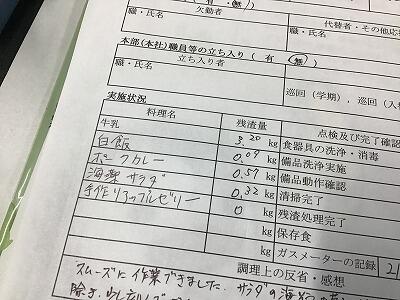 （有・無）
欠勤者
職・氏名
代替者・その他応
職・氏名
本部（本社）職員等の立ち入り（ 有 無 ）
立ち入り者
職・氏名
巡回（学期），巡回（入
実施状況
料理名 残渣量 点検及び完了確認
牛乳 3.20 kg 食器具の洗浄・消毒
白飯 0.09 kg 備品洗浄実施
ポークカレー 0.57 kg 備品動作確認
海藻サラダ 0.32 kg 清掃完了
手作りりんごゼリー 0 kg 残渣処理完了
kg 保存食
kg ガスメーターの記録
調理上の反省・感想
スムーズに作業できました。サラダの海そうの